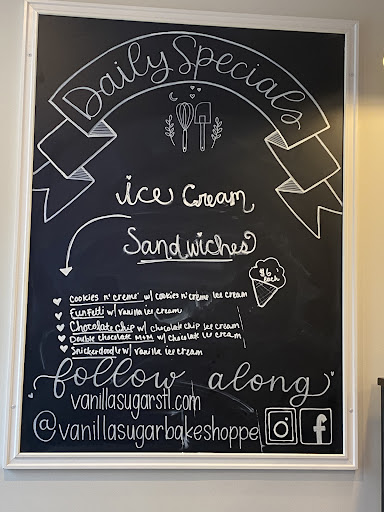 Daily Specials
ice cream
Sandwiches
$6 each
Cookies n' creme w/ cookies n' creme ice cream
Funfetti w/ vanilla ice cream
Chocolate Chip w/ chocolate chip ice cream
Double chocolate M&M w/ chocolate ice cream
Snickerdoodle w/ vanilla ice cream
follow along
vanillasugarstl.com
@vanillasugarbakeshoppe
f